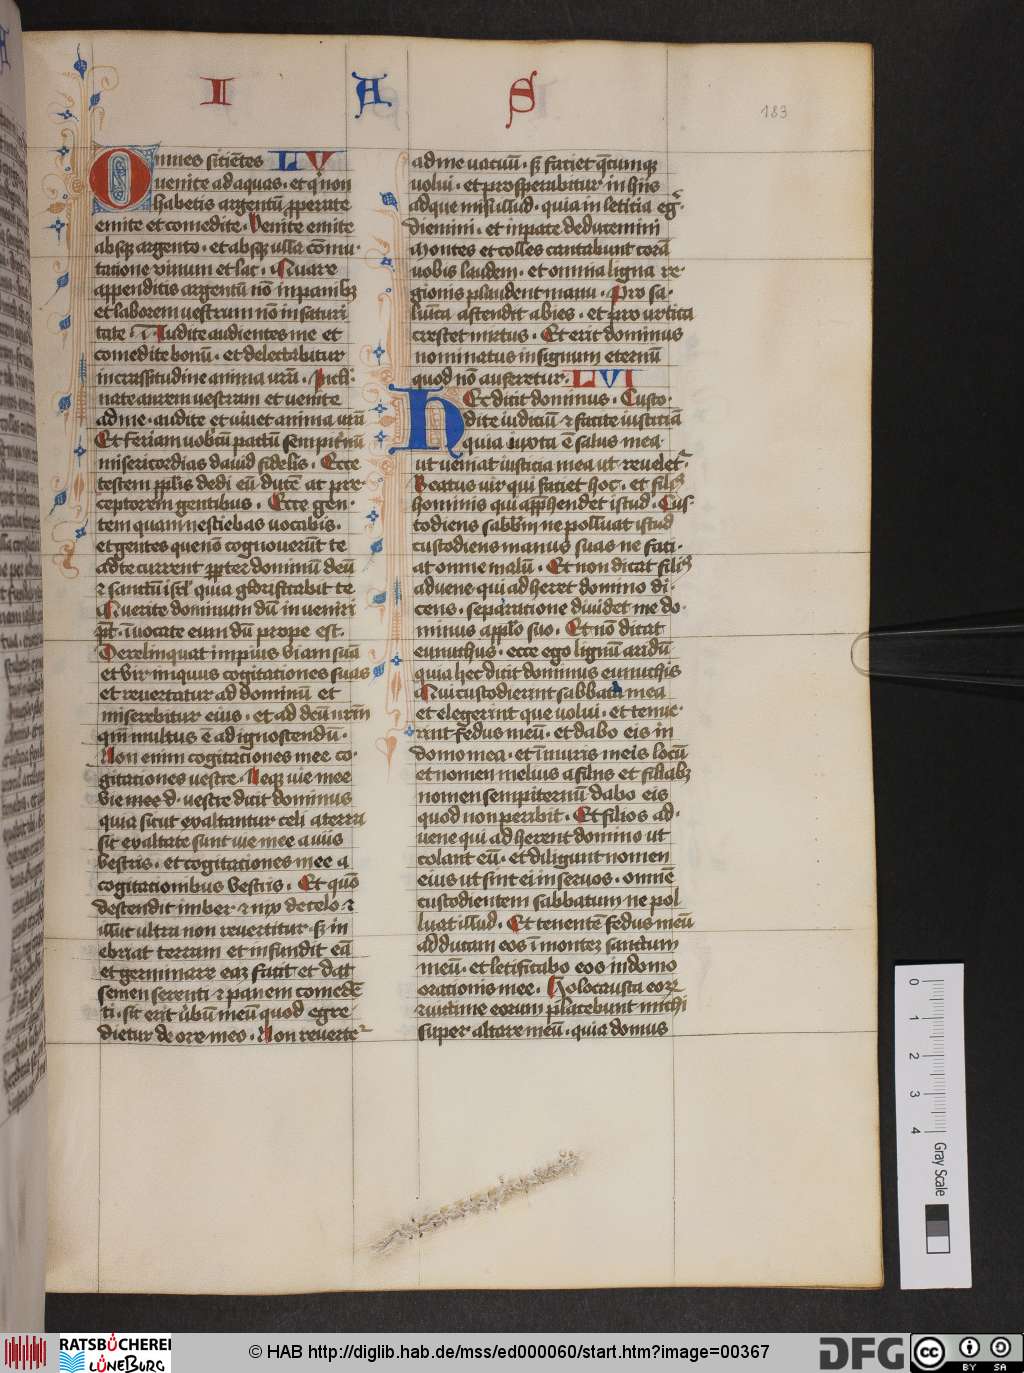 I A S
183
Omnes sitiẽtes LV
venite ad aquas · et qͥ non
habetis argentũ ꝓperate
emite et comedite · Venite emite
absqꝫ argento · et absqꝫ ulla cõmu·
tatione vinum et lac · Quare
appenditis argentũ nõ in panibꝫ
et laborem uestrum nõ in saturi
tate · Audite audientes me et
comedite bonũ · et delectabitur
in crassitudine anima vrã · Incli·
nate aurem uestram et venite
ad me · audite et uiuet anima vrã
Et feriam vobcũ pactũ sempit'nũ
misericordias dauid fidelis · Ecce
testem pplis dedi eũ ducẽ ac pre·
ceptorem gentibus · Ecce gen·
tem quam nesciebas uocabis ·
et gentes que nõ cognouerũt te
ad te current ꝓpter dominũ deũ
⁊ sanctũ isrl' quia glorificabit te
Querite dominum dũ inueniri
pt̃ · ĩuocate eum dũ prope est ·
Derelinquat impius viam suã
et vir iniquus cogitationes suas
et reuertatur ad dominũ et
miserebitur eius · et ad deũ nrm̃
qm̃ multus ẽ ad ignoscendũ ·
Non enim cogitationes mee co·
gitationes uestre · Neqꝫ uie mee
vie mee d· uestre dicit dominus
quia sicut exaltantur celi a terra
sic exaltate sunt uie mee a uiis
vestris · et cogitationes mee a
cogitationibus vestris · Et quõ
descendit imber ⁊ nix de celo ⁊
illuc ultra non reuertitur · sꝫ in
ebriat terram et infundit eã
et germinare eaꝫ facit et dat
semen serenti ⁊ panem comedẽ
ti · sic erit v̾bũ meũ quod egre
dietur de ore meo · Non reuertet'
ad me vacuũ · sꝫ faciet q̃cumqꝫ
uolui · et prosperabitur in hiis
ad que misi illud · quia in leticia eg̾·
diemini · et in pace deducemini
Montes et colles cantabunt corã
uobis laudem · et omnia ligna re·
gionis plaudent manu · Pro sa·
liũca ascendit abies · et pro urtica
crescet mirtus · Et erit dominus
nominatus in signum eternũ
quod nõ auferetur · LVI
Hec dicit dominus · Custo·
dite iudiciũ ⁊ facite iusticiã
quia iuxta ẽ salus mea
ut veniat iusticia mea ut reuelet'
Beatus uir qui faciet hoc · et filiꝰ
hominis qui app̾hendet istud · Cus·
todiens sabb'm ne polluat istud
custodiens manus suas ne faci·
at omne malũ · Et non dicat filiꝰ
aduene qui adheret domino di·
cens · separatione diuidet me do·
minus a pplo suo · Et nõ dicat
eunuchus · ecce ego lignũ aridũ
quia hec dicit dominus eunuchis
Qui custodierint sabbata mea
et elegerint que uolui · et tenue·
rint fedus meũ · et dabo eis in
domo mea · et ĩ muris meis locũ
et nomen melius a filiis et filiabꝫ
nomen sempiternũ dabo eis
quod non peribit · Et filios ad·
uene qui adherent domino ut
colant eũ · et diligunt nomen
eius ut sint ei in seruos · omnẽ
custodientem sabbatum ne pol
luat illud · Et tenentẽ fedus meũ
adducam eos ĩ montem sanctum
meũ · et letificabo eos in domo
orationis mee · Holocausta eoꝝ
⁊ uictime eorum placebunt michi
super altare meũ · quia domus
0 1 2 3 4
Gray Scale
RATSBÜCHEREI
LÜNEBURG
© HAB http://diglib.hab.de/mss/ed000060/start.htm?image=00367
DFG
cc BY SA